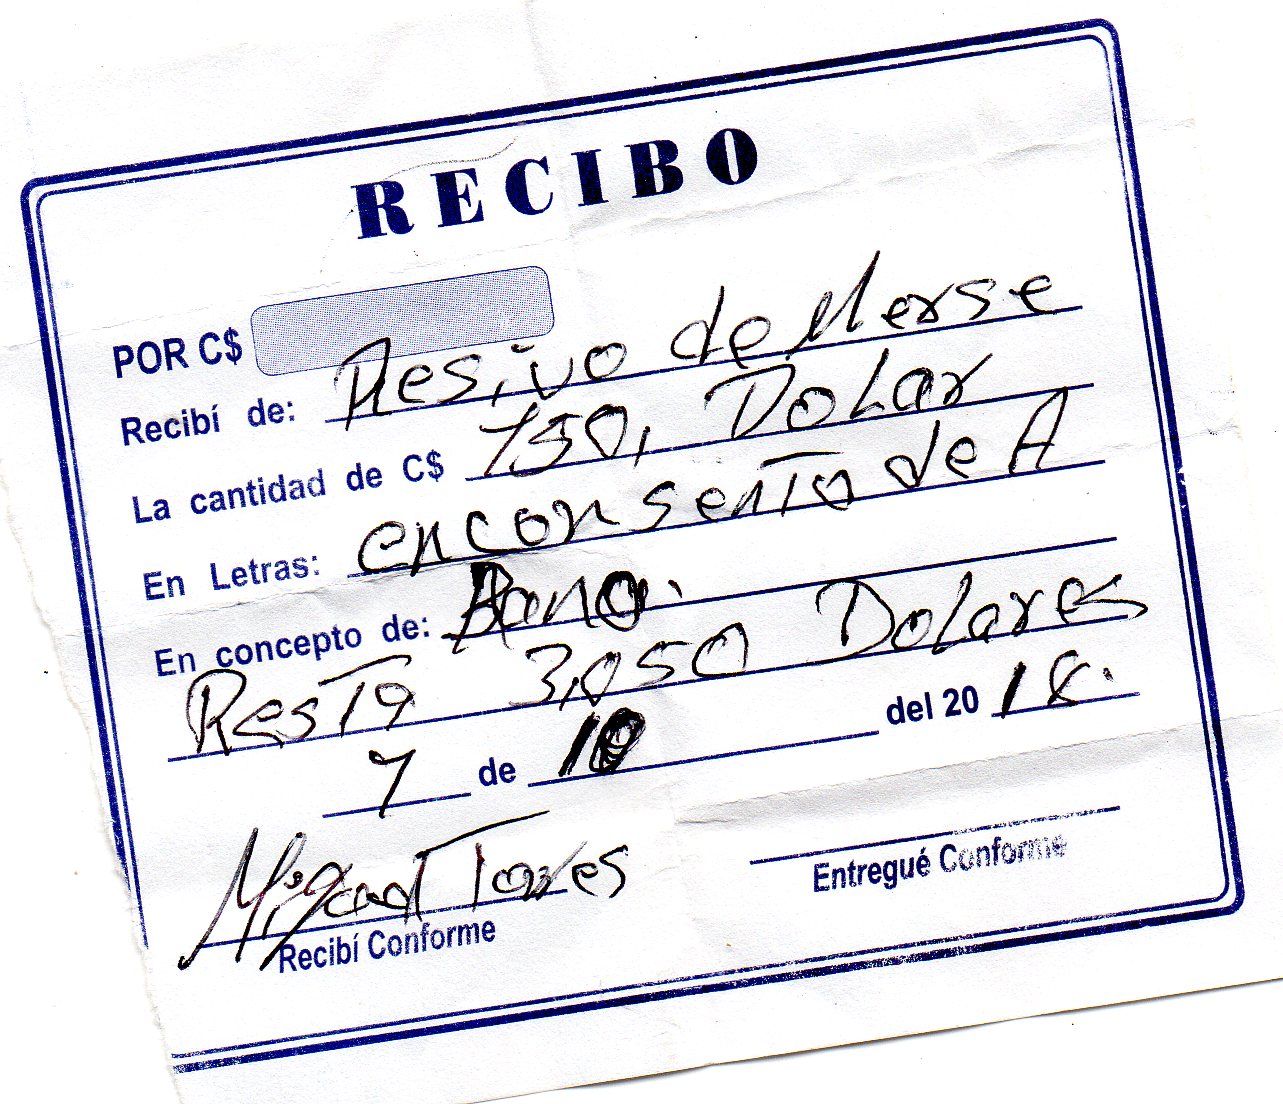 RECIBO
POR C$
Recibí de: Resivo de Merse
La cantidad de C$ 150, Dolar
En Letras: enconsento de A
En concepto de: Bano.
Resta 3,050 Dolares
7 de 10 del 20 18.
Torres
Recibí Conforme
Entregué Conforme